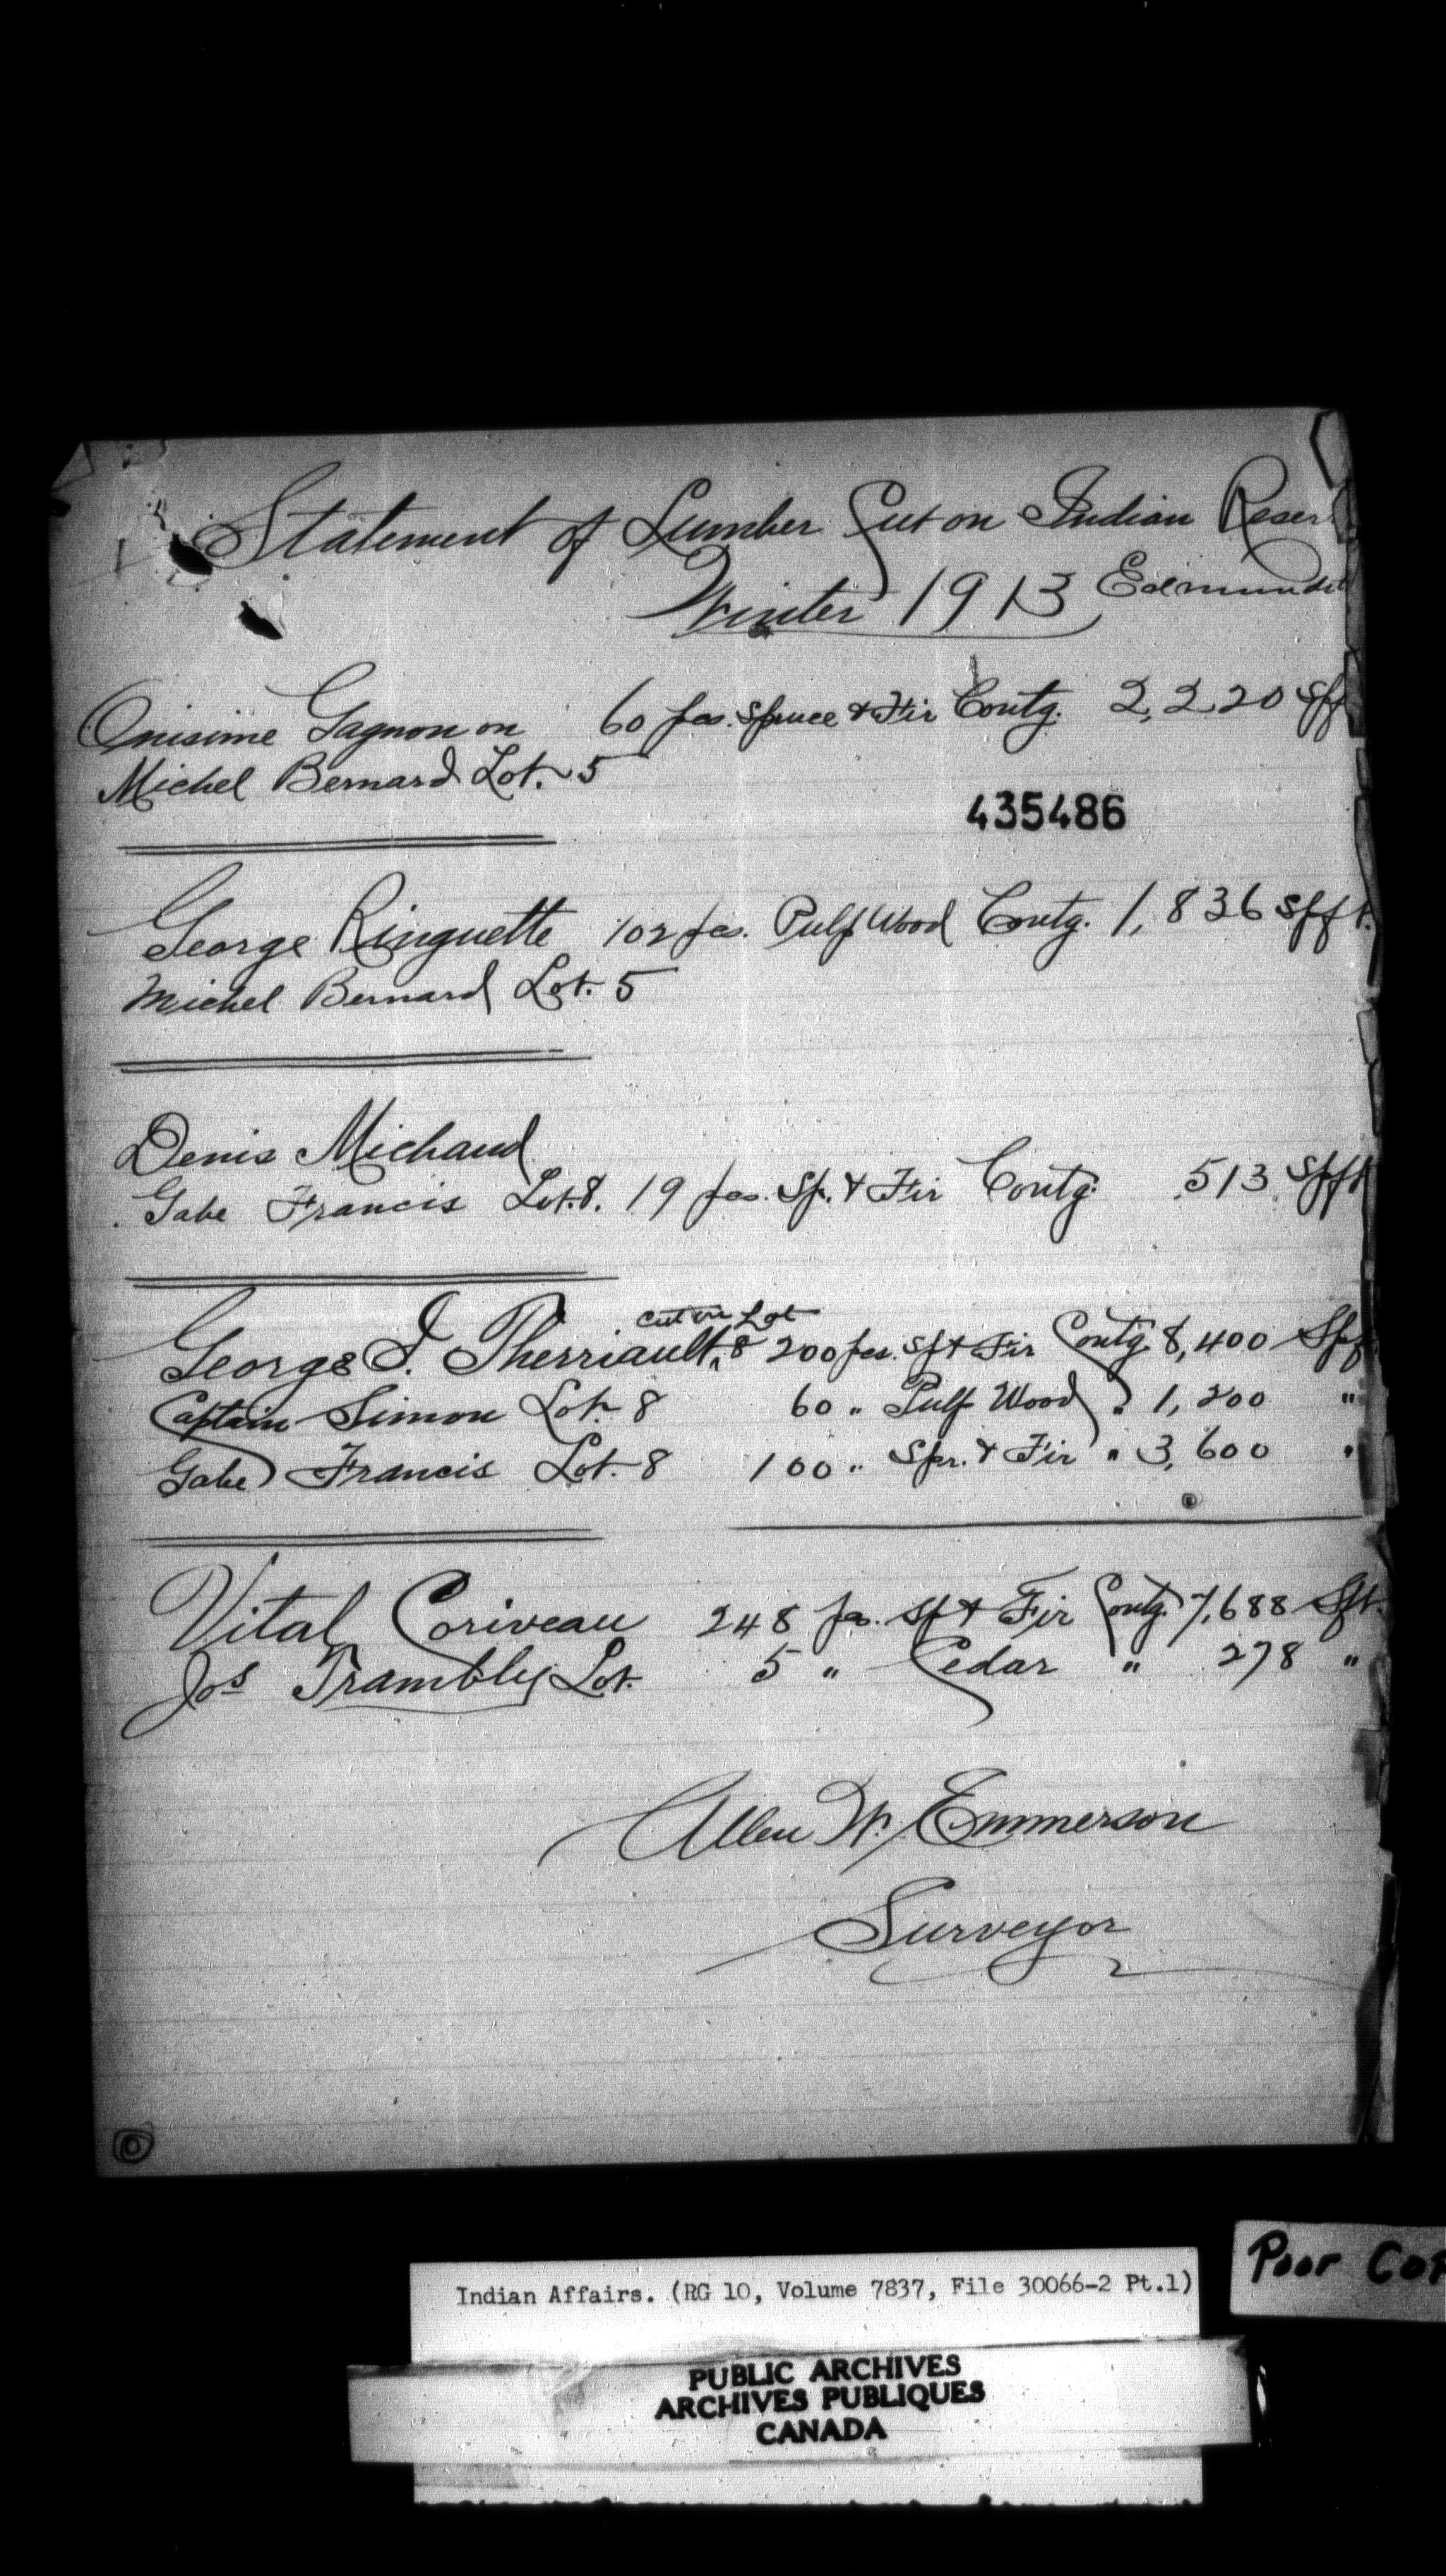 Statement of Lumber Cut on Indian Reser
Winter 1913 Edmundst
Onisime Gagnon on 60 pcs. Spruce & Fir Contg. 2,220 Spft
Michel Bernard Lot. 5
435486
George Ringuette 102 pcs. Pulp Wood Contg. 1,836 Spft.
Michel Bernard Lot. 5
Denis Michaud
Gabe Francis Lot. 8. 19 pcs. Sp. & Fir Contg. 513 Spft
cut on Lot
George I. Therriault 8 200 pcs. Sp & Fir Contg. 8,400 Spf
Captain Simon Lot. 8 60 " Pulp Wood " 1,200 "
Gabe Francis Lot. 8 100 " Spr. & Fir " 3,600 "
Vital Coriveau 248 pcs. Sp & Fir Contg. 7,688 Sft.
Jos Trambley Lot. 5 " Cedar " 278 "
Allen W. Emmerson
Surveyor
Poor Cop
Indian Affairs. (RG 10, Volume 7837, File 30066-2 Pt.1)
PUBLIC ARCHIVES
ARCHIVES PUBLIQUES
CANADA